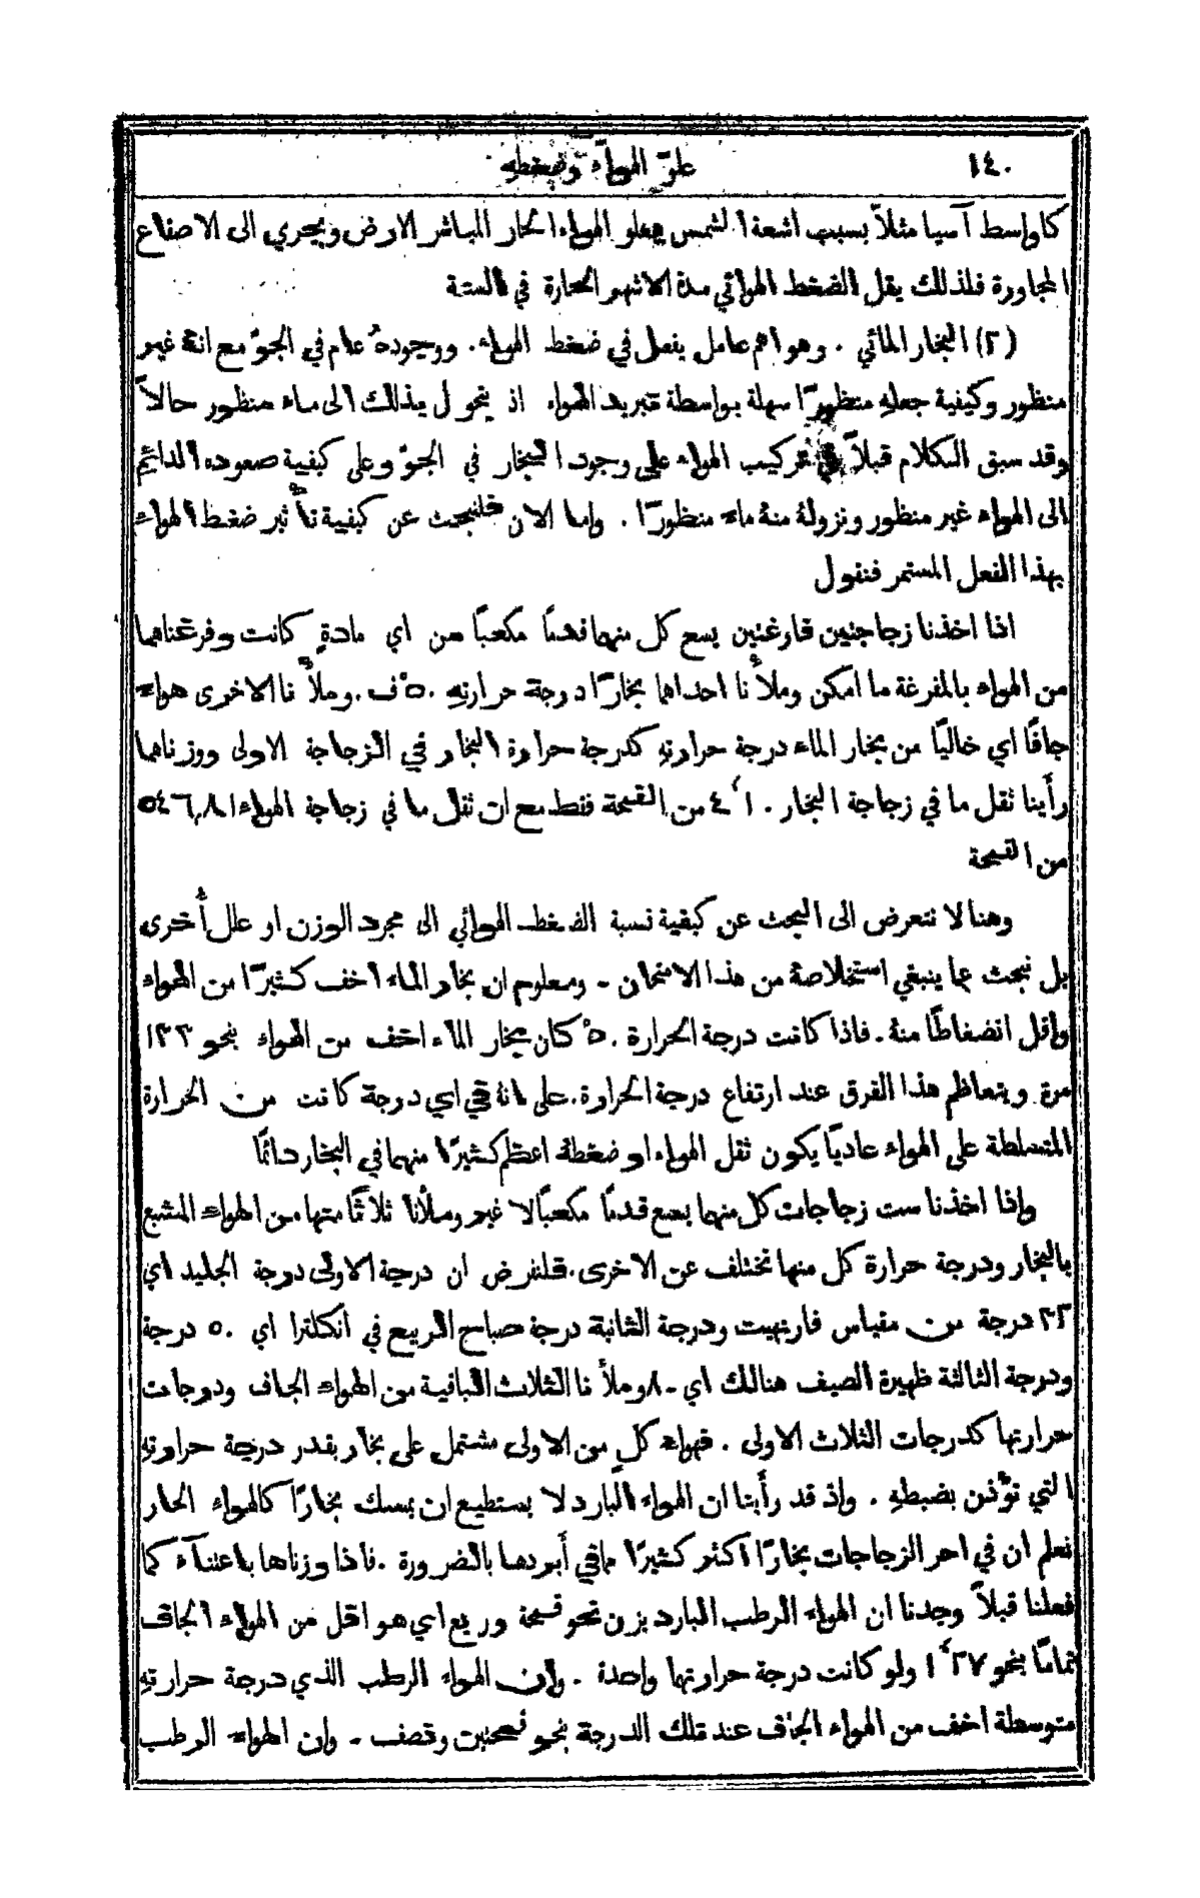 ١٤٠ علوّ الهواء وضغطه
كاواسط آسيا مثلاً بسبب اشعة الشمس يعلو الهواء الحار المباشر الارض ويجري الى الاصقاع
المجاورة فلذلك يقل الضغط الهوائي مدة الاشهر الحارة في السنة
(٢) البخار المائي . وهو اهم عامل يفعل في ضغط الهواء . ووجودهُ عام في الجوّ مع انهُ غير
منظور وكيفية جعلهِ منظورًا سهلة بواسطة تبريد الهواء اذ يتحول بذلك الى ماء منظور حالاً
وقد سبق الكلام قبلاً في تركيب الهواء على وجود البخار في الجوّ وعلى كيفية صعوده الدائم
الى الهواء غير منظور ونزولهُ منهُ ماء منظورًا . واما الان فلنبحث عن كيفية تأثير ضغط الهواء
بهذا الفعل المستمر فنقول
اذا اخذنا زجاجتين فارغتين يسع كل منهما قدمًا مكعبًا من اي مادةٍ كانت وفرغناهما
من الهواء بالمفرغة ما امكن وملأنا احداهما بخارًا درجة حرارتهِ ٥٠° ف . وملأنا الاخرى هواء
جافًا اي خاليًا من بخار الماء درجة حرارتهِ كدرجة حرارة البخار في الزجاجة الاولى ووزناهما
رأينا ثقل ما في زجاجة البخار ٤،١٠ من القمحة فقط مع ان ثقل ما في زجاجة الهواء ٥٤٦،٨١
من القمحة
وهنا لا نتعرض الى البحث عن كيفية نسبة الضغط الهوائي الى مجرد الوزن او علل أُخرى
بل نبحث عما ينبغي استخلاصهُ من هذا الامتحان - ومعلوم ان بخار الماء اخف كثيرًا من الهواء
واقل انضغاطًا منهُ . فاذا كانت درجة الحرارة ٥٠° كان بخار الماء اخف من الهواء بنحو ١٣٣
مرة ويتعاظم هذا الفرق عند ارتفاع درجة الحرارة . على انهُ في اي درجة كانت من الحرارة
المتسلطة على الهواء عاديًا يكون ثقل الهواء او ضغطهُ اعظم كثيرًا منهما في البخار دائمًا
واذا اخذنا ست زجاجات كل منها يسع قدمًا مكعبًا لا غير وملأنا ثلاثًا منها من الهواء المشبع
بالبخار ودرجة حرارة كل منها تختلف عن الاخرى . فلنفرض ان درجة الاولى درجة الجليد اي
٣٢ درجة من مقياس فارنهيت ودرجة الثانية درجة صباح الربيع في انكلترا اي ٥٠ درجة
ودرجة الثالثة ظهيرة الصيف هنالك اي ٨٠ وملأنا الثلاث الباقية من الهواء الجاف ودرجات
حرارتها كدرجات الثلاث الاولى . فهواء كل من الاولى مشتمل على بخار بقدر درجة حرارتهِ
التي تؤْذن بضبطهِ . واذ قد رأينا ان الهواء البارد لا يستطيع ان يمسك بخارًا كالهواء الحار
نعلم ان في احر الزجاجات بخارًا اكثر كثيرًا مما في أبردها بالضرورة . فاذا وزناها باعتناءٓ كما
فعلنا قبلاً وجدنا ان الهواء الرطب البارد يزن نحو قمحة وربع اي هو اقل من الهواء الجاف
تمامًا بنحو ١،٢٧ ولو كانت درجة حرارتها واحدة . وان الهواء الرطب الذي درجة حرارتهِ
متوسطة اخف من الهواء الجاف عند تلك الدرجة بنحو قمحتين ونصف - وان الهواء الرطب